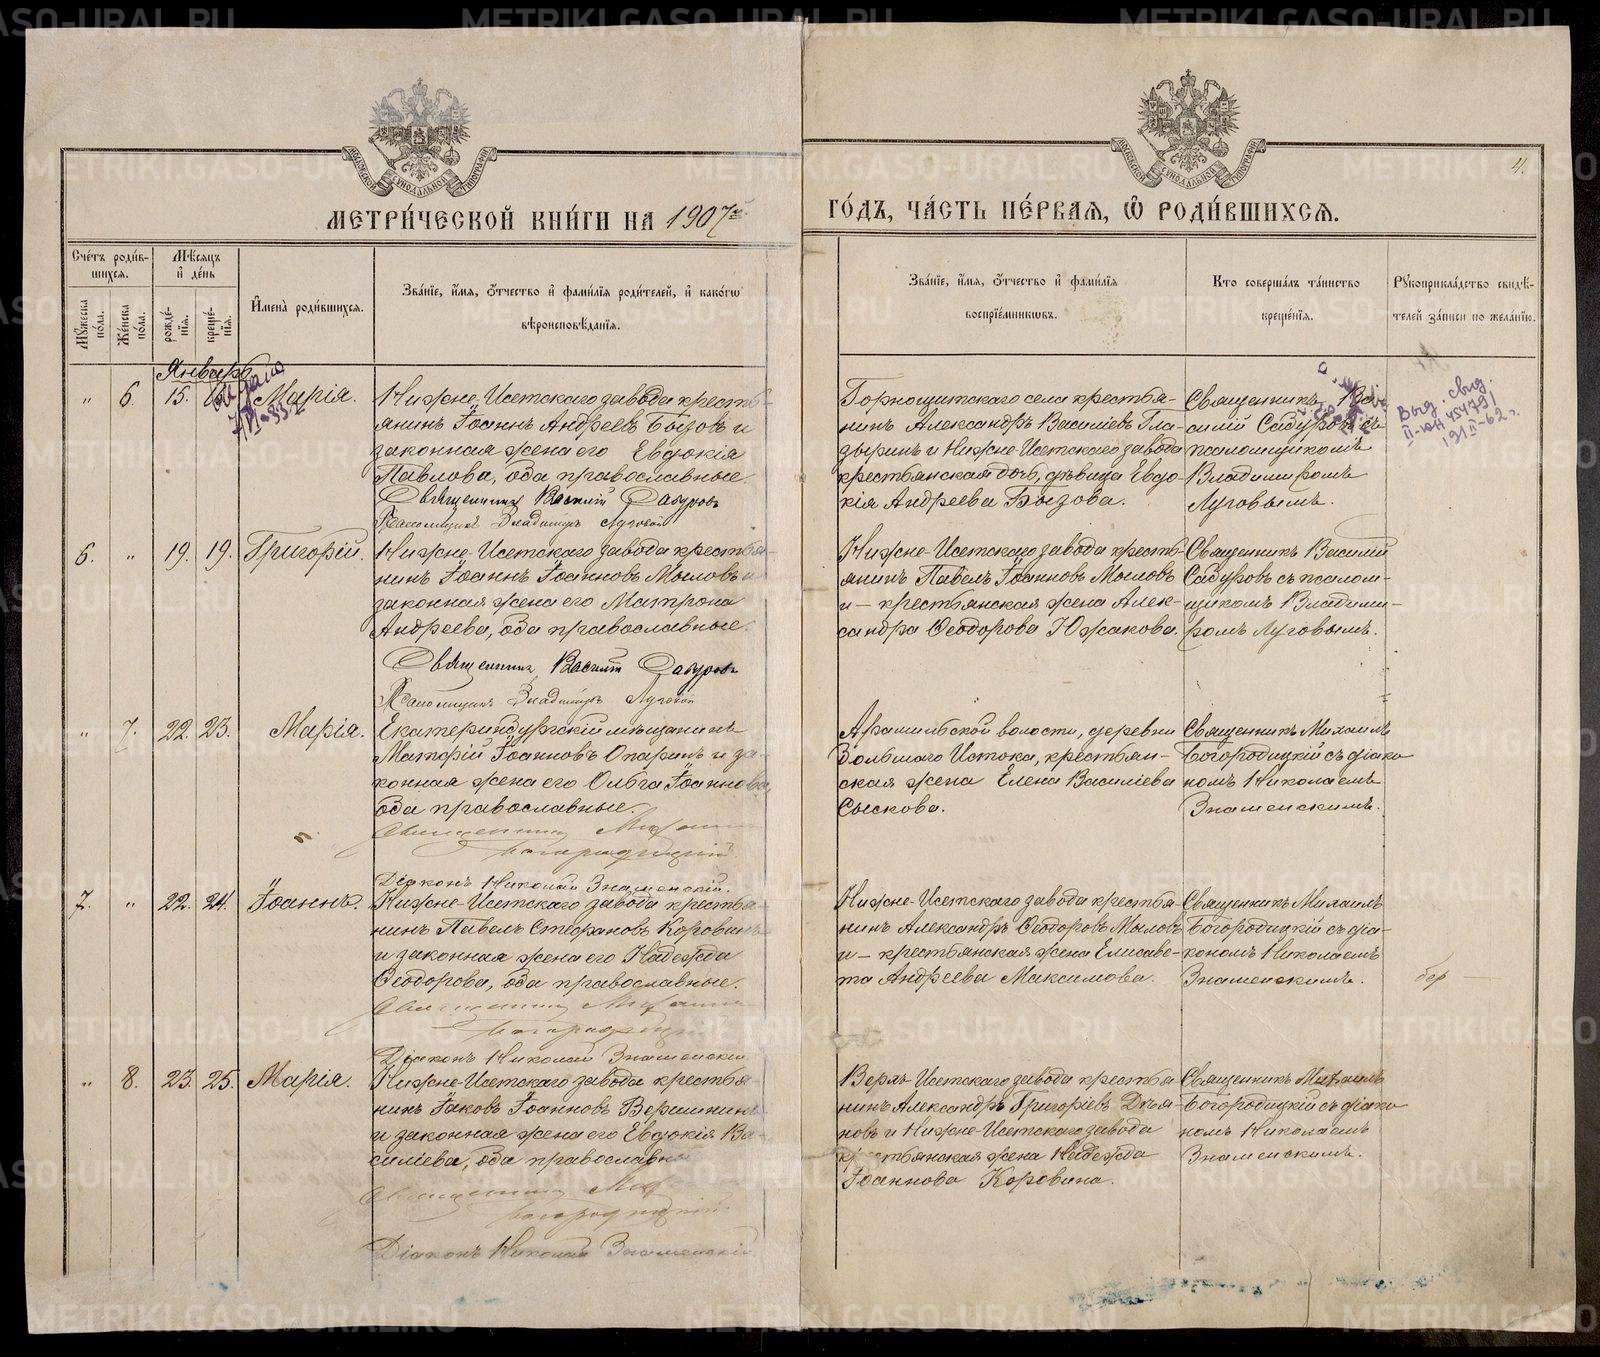 МЕТРИ́ЧЕСКОЙ КНИ́ГИ НА 1907й ГО́ДЪ, ЧА́СТЬ ПЕ́РВАЯ, Ѡ РОДИ́ВШИХСЯ.
4.
Сче́тъ роди́в-
шихся.
Мꙋ́жеска по́ла.
Же́нска по́ла.
Мѣ́сяцъ и де́нь
рожде́-
нїя.
креще́-
нїя.
И҆мена̀ роди́вшихся.
Зва́нїе, и҆́мя, ѻ҆́тчество и҆ фами́лїя роди́телей, и҆ како́гѡ
вѣроисповѣ́данїя.
Зва́нїе, и҆́мя, ѻ҆́тчество и҆ фами́лїя
воспрїе́мникѡвъ.
Кто̀ соверша́лъ та́инство
креще́нїя.
Рꙋкоприкла́дство свидѣ́-
телей за́писи по жела́нїю.
Январь
" 6. 15. Марія.
Нижне-Исетскаго завода кресть-
янинъ Іоаннъ Андреевъ Бызовъ и
законная жена его Евдокія
Павлова, оба православные.
Священникъ Василій Сабуровъ
Псаломщикъ Владиміръ Луговой
Горнощитскаго села крестья-
нинъ Александръ Василіевъ Гла-
дыринъ и Нижне-Исетскаго завода
крестьянская дочь, дѣвица Евдо-
кія Андреева Бызова.
Священникъ Ва-
силій Сабуровъ съ
псаломщикомъ
Владиміромъ
Луговымъ.
Выд. свид.
II-ЮА 454791
191 II-62 г.
6. " 19. 19. Григорій.
Нижне-Исетскаго завода крестья-
нинъ Іоаннъ Іоанновъ Мыловъ и
законная жена его Матрона
Андреева, оба православные.
Священникъ Василій Сабуровъ
Псаломщикъ Владиміръ Луговой
Нижне-Исетскаго завода кресть-
янинъ Павелъ Іоанновъ Мыловъ
и — крестьянская жена Алек-
сандра Ѳеодорова Южакова.
Священникъ Василій
Сабуровъ съ псалом-
щикомъ Владимі-
ромъ Луговымъ.
" 7. 22. 23. Марія.
Екатеринбургскій мѣщанинъ
Матфій Іоанновъ Опаринъ и за-
конная жена его Ольга Іоаннова,
оба православные.
Священникъ Михаилъ
Богородицкій
Діаконъ Николай Знаменскій.
Арамильской волости, деревни
Большаго Истока, крестьян-
ская жена Елена Василіева
Сыскова.
Священникъ Михаилъ
Богородицкій съ діако-
номъ Николаемъ
Знаменскимъ.
7. " 22. 24. Іоаннъ.
Нижне-Исетскаго завода крестья-
нинъ Павелъ Стефановъ Коровинъ
и законная жена его Надежда
Ѳеодорова, оба православные.
Священникъ Михаилъ
Богородицкій
Діаконъ Николай Знаменскій
Нижне-Исетскаго завода крестья-
нинъ Александръ Ѳеодоровъ Мыловъ
и — крестьянская жена Елисаве-
та Андреева Максимова.
Священникъ Михаилъ
Богородицкій съ діа-
кономъ Николаемъ
Знаменскимъ.
" 8. 23. 25. Марія.
Нижне-Исетскаго завода крестья-
нинъ Іаковъ Іоанновъ Вершининъ
и законная жена его Евдокія Ва-
силіева, оба православн
Священникъ Михаилъ
Богородицкій
Діаконъ Николай Знаменскій
Верхъ-Исетскаго завода крестья-
нинъ Александръ Григоріевъ Дья-
новъ и Нижне-Исетскаго завода
крестьянская жена Надежда
Іоаннова Коровина.
Священникъ Михаилъ
Богородицкій съ діако-
номъ Николаемъ
Знаменскимъ.
METRIKI.GASO-URAL.RU